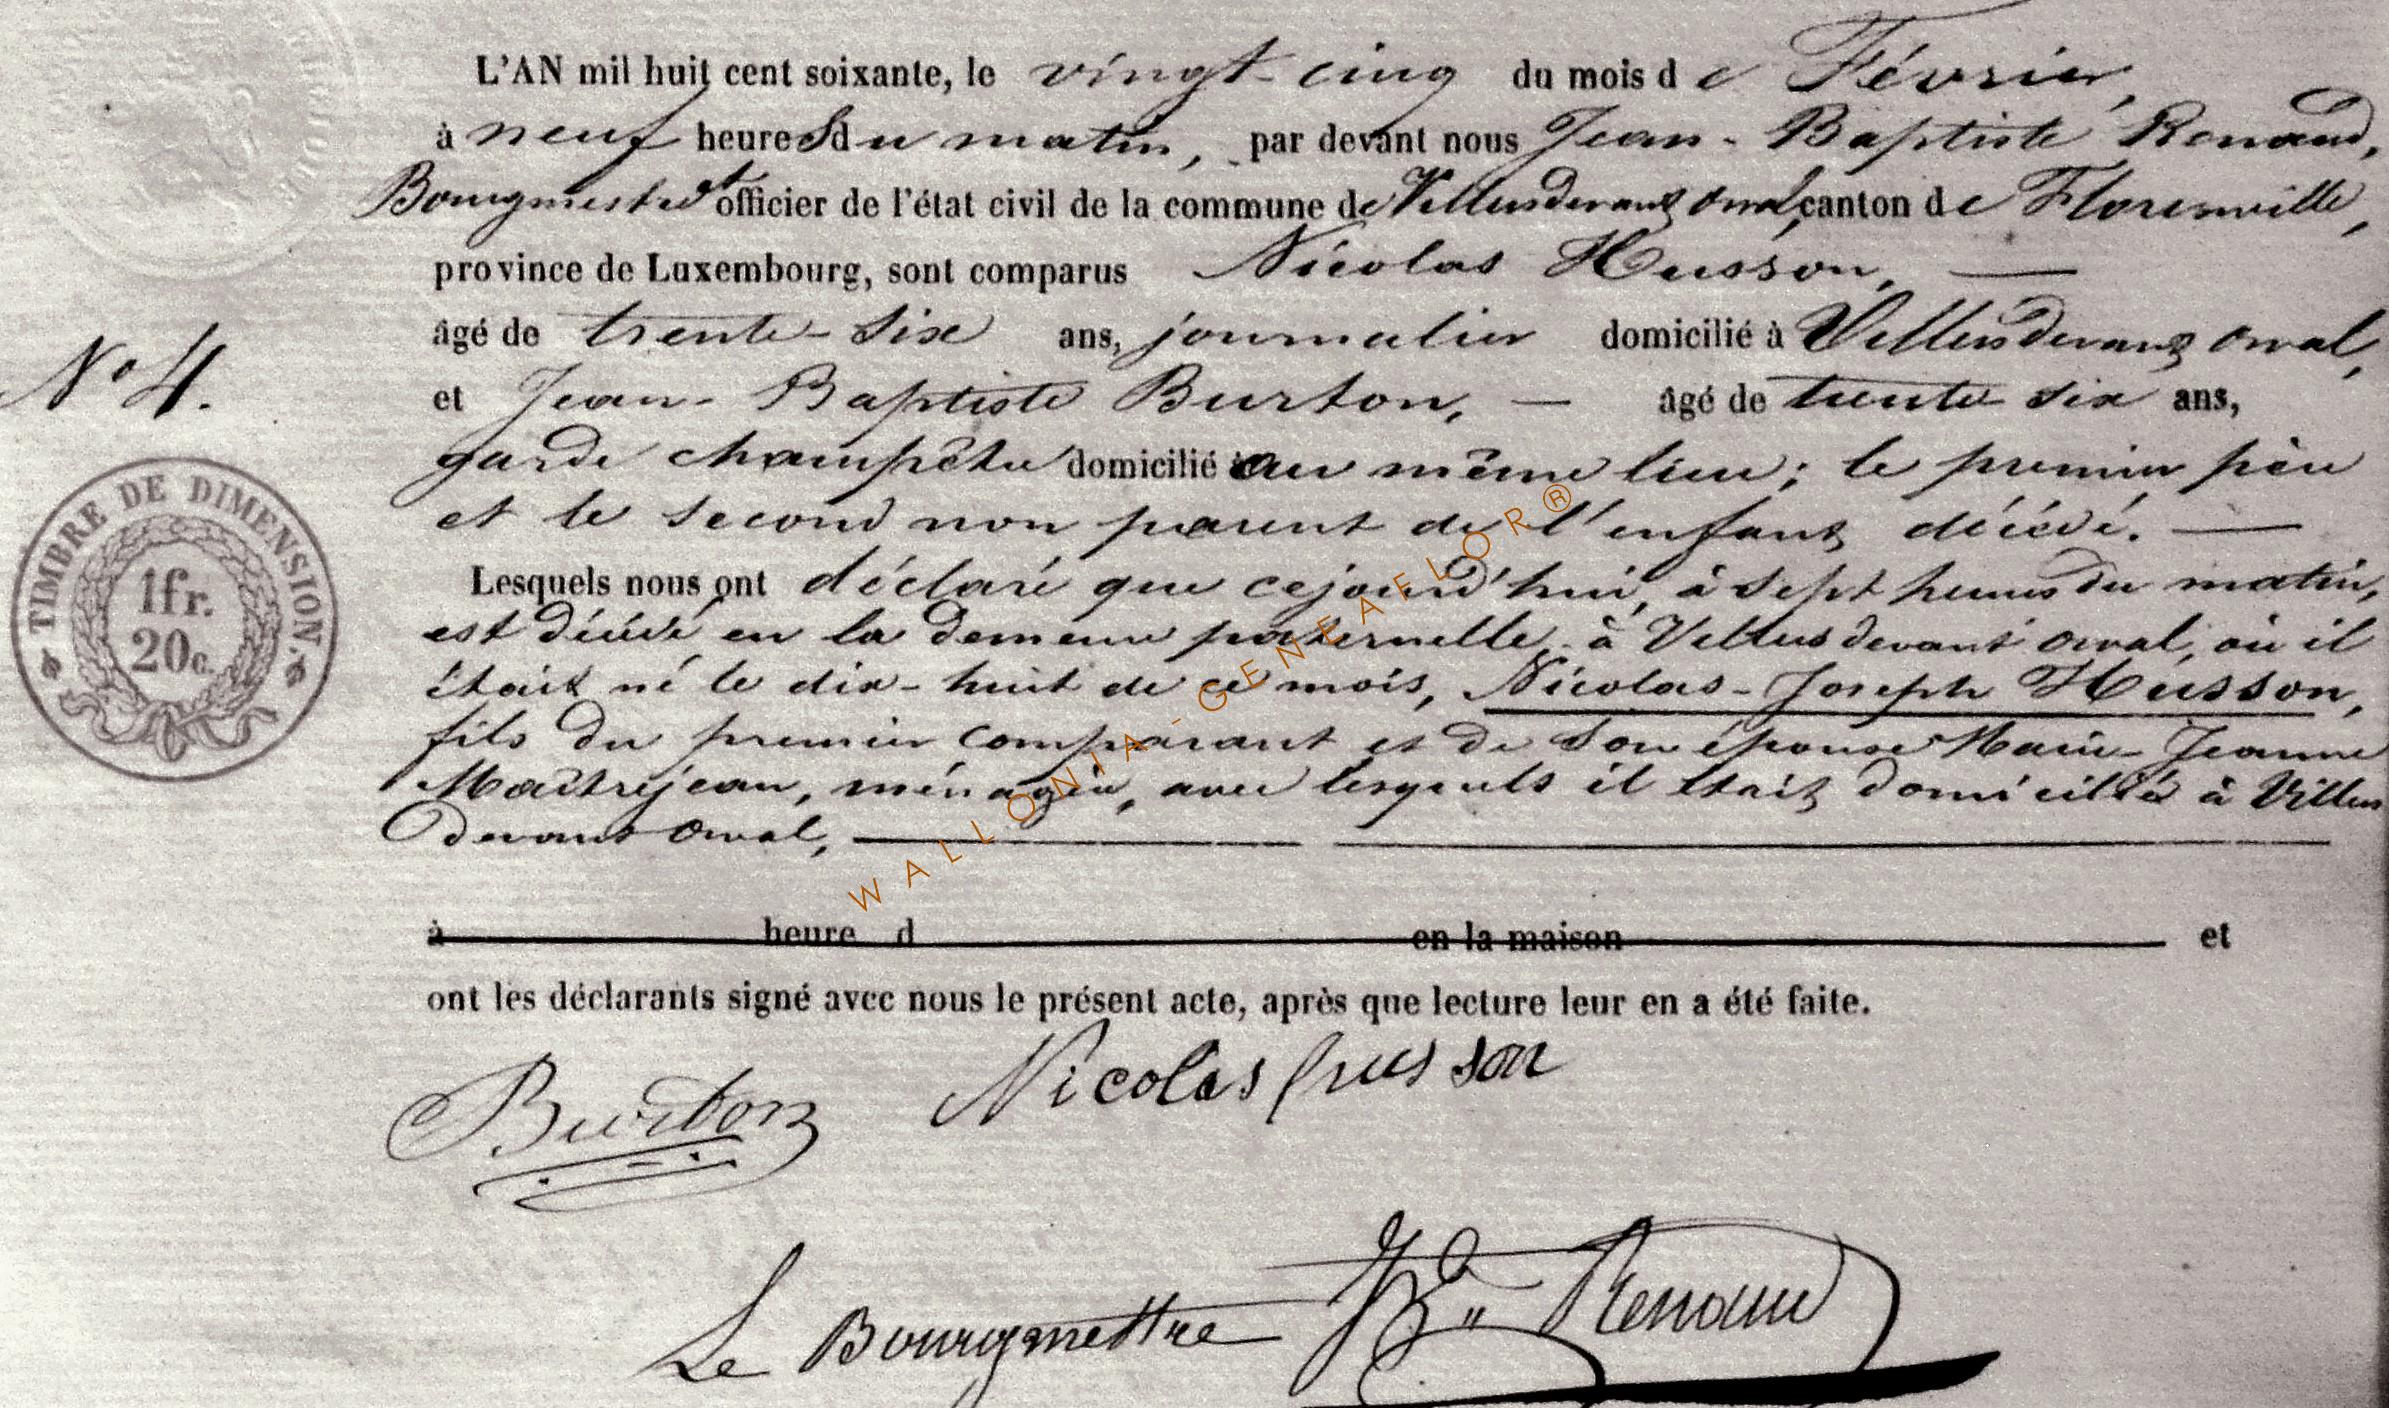 L'AN mil huit cent soixante, le vingt-cinq du mois de Février,
à neuf heures du matin, par devant nous Jean-Baptiste Renaud,
Bourgmestre et officier de l'état civil de la commune de Villers devant Orval, canton de Florenville,
province de Luxembourg, sont comparus Nicolas Husson, —
âgé de trente-six ans, journalier domicilié à Villers devant Orval,
et Jean-Baptiste Burton, — âgé de trente six ans,
N° 4.
garde champêtre domicilié au même lieu; le premier père
et le second non parent de l'enfant décédé. —
Lesquels nous ont déclaré que cejourd'hui, à sept heures du matin,
est décédé en la demeure paternelle, à Villers devant Orval, où il
était né le dix-huit de ce mois, Nicolas-Joseph Husson,
fils du premier comparant et de son épouse Marie-Jeanne
Maîtrejean, ménagère, avec lesquels il était domicilié à Villers
devant Orval,
TIMBRE DE DIMENSION.
1fr.
20c.
WALLONIA-GENEAFLOR®
à heure d en la maison et
ont les déclarants signé avec nous le présent acte, après que lecture leur en a été faite.
Burton Nicolas husson
Le Bourgmettre JBte Renaud